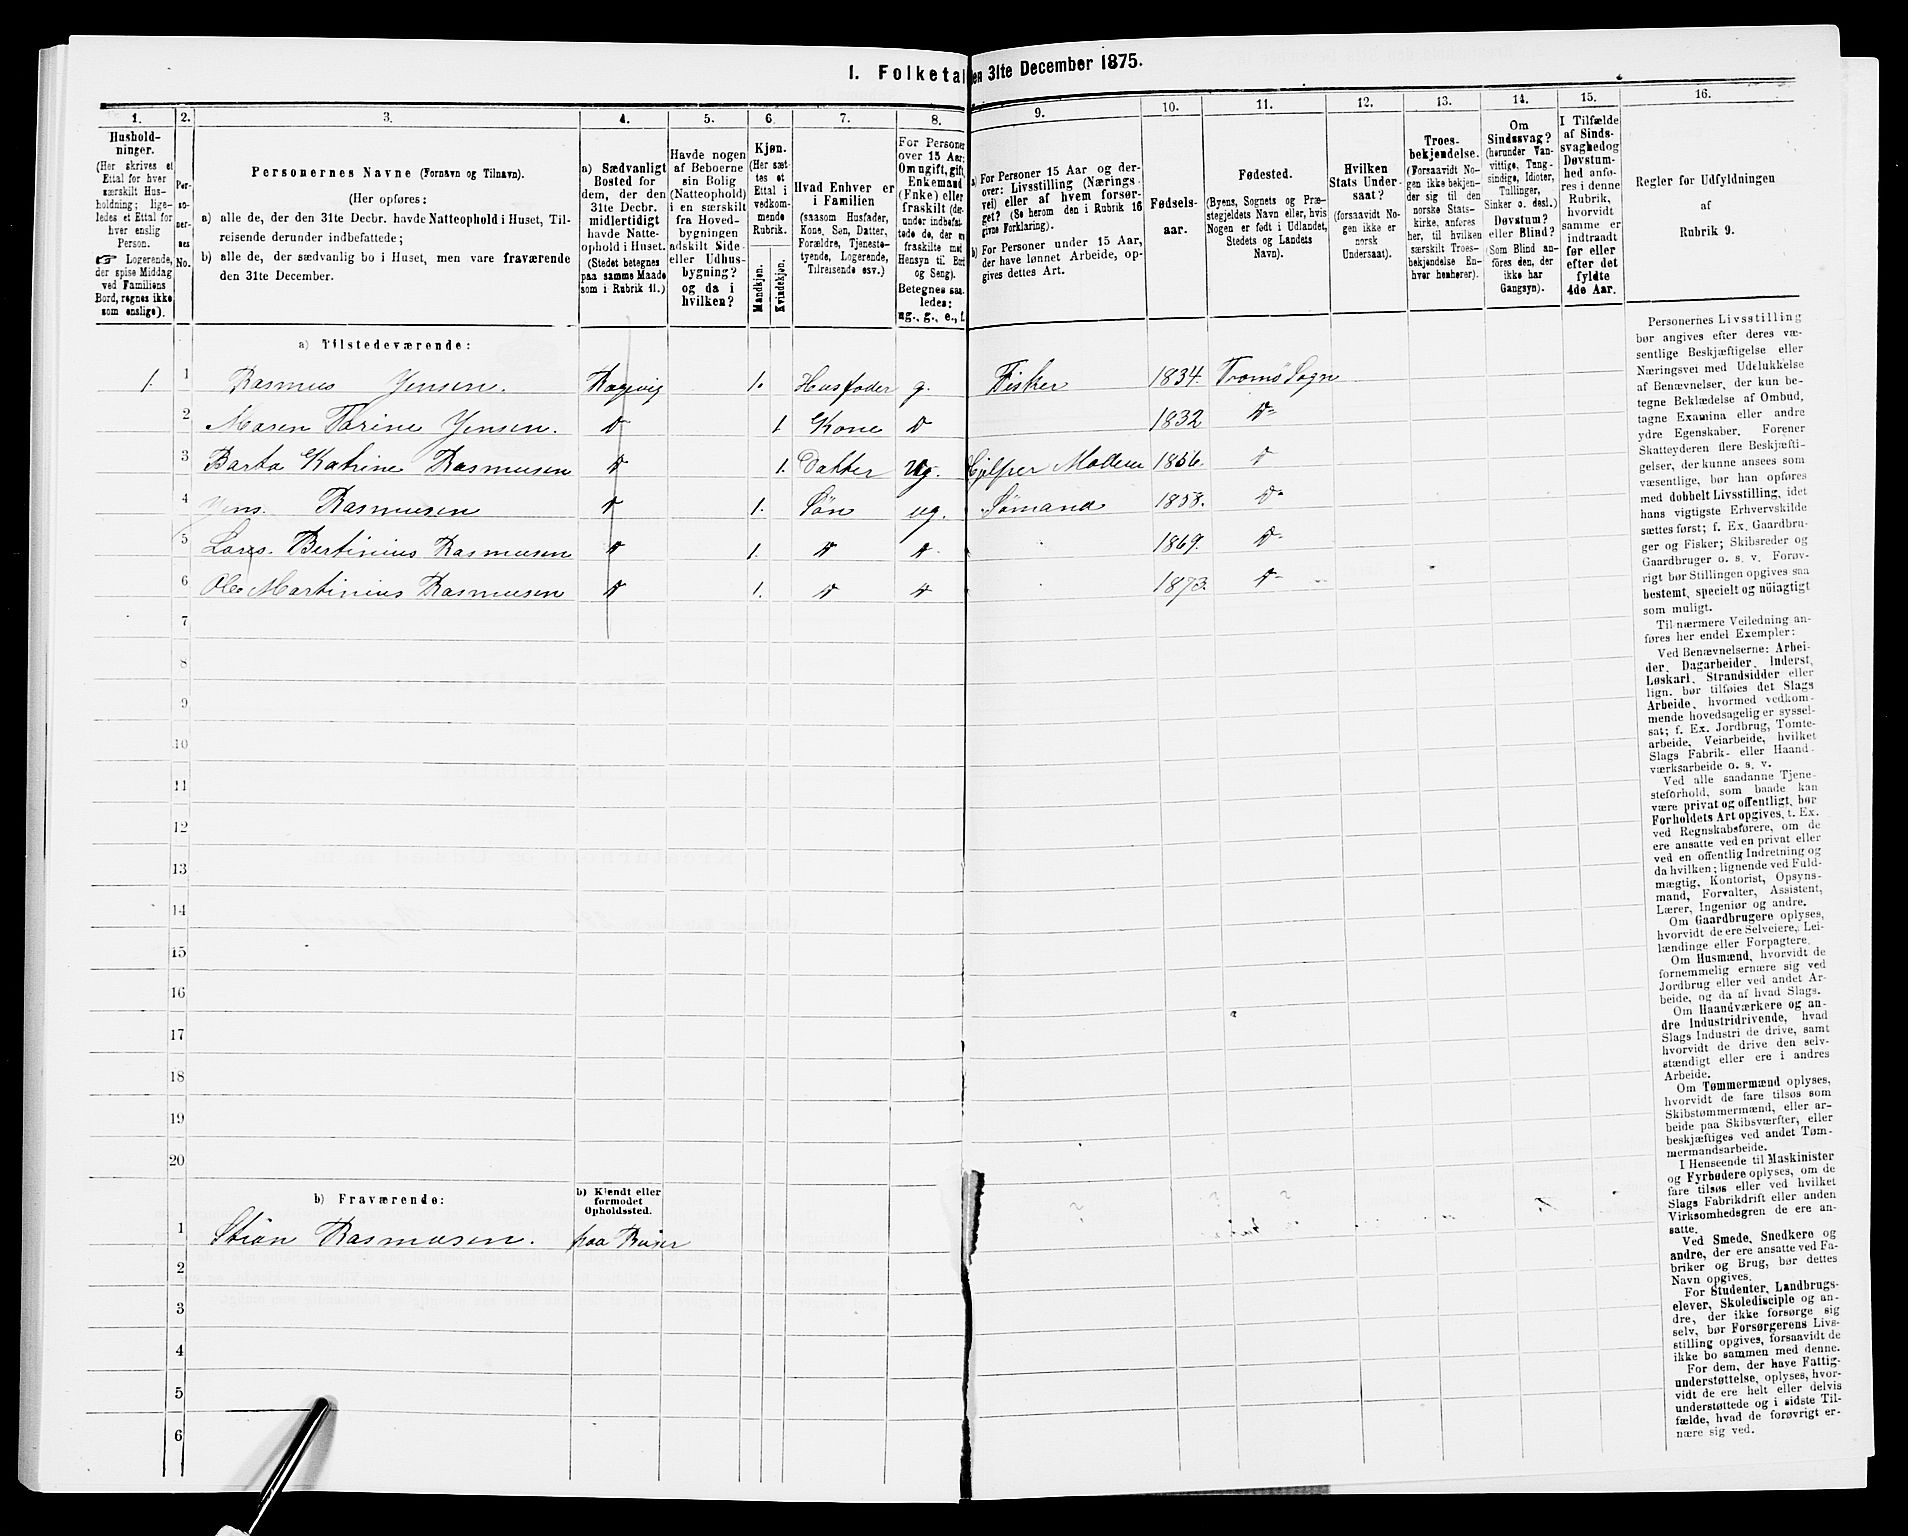 I. Folketal den 31te December 1875.
1. 2. 3. 4. 5. 6. 7. 8. 9. 10. 11. 12. 13. 14. 15. 16.
Husholdninger.
(Her skrives et
Ettal for hver
særskilt Hus-
holdning; lige-
ledes et Ettal for
hver enslig
Person.
☞ Logerende,
der spise Middag
ved Familiens
Bord, regnes ikke
som enslige).
Per-
so-
ner-
nes
No.
Personernes Navne (Fornavn og Tilnavn).
(Her opføres:
a) alle de, der den 31te Decbr. havde Natteophold i Huset, Til-
reisende derunder indbefattede;
b) alle de, der sædvanlig bo i Huset, men vare fraværende
den 31te December.
a) Sædvanligt
Bosted for
dem, der den
31te Decbr.
midlertidigt
havde Natte-
ophold i Huset.
(Stedet betegnes
paa samme Maade
som i Rubrik 11.)
Havde nogen
af Beboerne
sin Bolig
(Natteophold)
i en særskilt
fra Hoved-
bygningen
adskilt Side-
eller Udhus-
bygning?
og da i
hvilken?
Kjøn.
(Her sæt-
tes et
Ettal i
vedkom-
mende
Rubrik.
Mandkjøn.
Kvindekjøn.
Hvad Enhver er
i Familien
(saasom Husfader,
Kone, Søn, Datter,
Forældre, Tjeneste-
tyende, Logerende,
Tilreisende osv.)
For Personer
over 15 Aar:
Om ugift, gift,
Enkemand
(Enke) eller
fraskilt (der-
under indbefat-
tede de, der ere
fraskilte med
Hensyn til Bord
og Seng).
Betegnes saa-
ledes:
ug., g., e., f.
a) For Personer 15 Aar og der-
over: Livsstilling (Nærings-
vei) eller af hvem forsør-
get? (Se herom den i Rubrik 16
givne Forklaring).
b) For Personer under 15 Aar,
der have lønnet Arbeide, op-
gives dettes Art.
Fødsels-
aar.
Fødested.
(Byens, Sognets og Præ-
stegjeldets Navn eller, hvis
Nogen er født i Udlandet,
Stedets og Landets
Navn).
Hvilken
Stats Under-
saat?
(forsaavidt No-
gen ikke er
norsk
Undersaat).
Troes-
bekjendelse.
(Forsaavidt No-
gen ikke bekjen-
der sig til den
norske Stats-
kirke, anføres
her, til hvilken
særskilt Troes-
bekjendelse En-
hver henhører).
Om
Sindssvag?
(herunder Van-
vittige, Tung-
sindige, Idioter,
Tullinger,
Sinker o. desl.)
Døvstum?
eller Blind?
(Som Blind an-
føres den, der
ikke har
Gangsyn).
I Tilfælde
af Sinds-
svaghed og
Døvstum-
hed anfø-
res i denne
Rubrik,
hvorvidt
samme er
indtraadt
før eller
efter det
fyldte
4de Aar.
Regler for Udfyldningen
af
Rubrik 9.
a) Tilstedeværende:
1. 1 Rasmus Jensen. Ragevig 1. Husfader g. Fisker 1834. Tromø Sogn
2 Maren Tarine Jensen. D 1 Kone D 1832 D
3 Barta Katrine Rasmusen D 1. Datter Ug. Hjelper Moderen 1856. D
4 Jens. Rasmusen D 1. Søn ug. Sømand 1858. D
5 Lars. Bertinius Rasmusen D 1. D D 1869. D
6 Ole Martinius Rasmusen D 1. D D 1873. D
7
8
9
10
11
12
13
14
15
16
17
18
19
20
b) Fraværende:
b) Kjendt eller
formodet
Opholdssted.
1 Stian Rasmusen. paa Reiser
2
3
4
5
6
Personernes Livsstilling
bør angives efter deres væ-
sentlige Beskjæftigelse eller
Næringsvei med Udelukkelse
af Benævnelser, der kun be-
tegne Beklædelse af Ombud,
tagne Examina eller andre
ydre Egenskaber. Forener
Skatteyderen flere Beskjæfti-
gelser, der kunne ansees som
væsentlige, bør han opføres
med dobbelt Livsstilling, idet
hans vigtigste Erhvervskilde
sættes først; f. Ex. Gaardbru-
ger og Fisker; Skibsreder og
Gaardbruger o. s. v. Forøv-
rigt bør Stillingen opgives saa
bestemt, specielt og nöiagtigt
som muligt.
Til nærmere Veiledning an-
føres her endel Exempler:
Ved Benævnelserne: Arbei-
der, Dagarbeider, Inderst,
Løskarl, Strandsidder eller
lign. bør tilføies det Slags
Arbeide, hvormed vedkom-
mende hovedsagelig er syssel-
sat; f. Ex. Jordbrug, Tomte-
arbeide, Veiarbeide, hvilket
Slags Fabrik- eller Haand-
værksarbeide o. s. v.
Ved alle saadanne Tjene-
steforhold, som baade kan
være privat og offentligt, bør
Forholdets Art opgives, t. Ex.
ved Regnskabsførere, om de
ere ansatte ved en privat eller
ved en offentlig Indretning og
da hvilken; lignende ved Fuld-
mægtig, Kontorist, Opsyns-
mand, Forvalter, Assistent,
Lærer, Ingeniør og andre.
Om Gaardbrugere oplyses,
hvorvidt de ere Selveiere, Lei-
lændinge eller Forpagtere.
Om Husmænd, hvorvidt de
fornemmelig ernære sig ved
Jordbrug eller ved andet Ar-
beide, og da af hvad Slags.
Om Haandværkere og an-
dre Industridrivende, hvad
Slags Industri de drive, samt
hvorvidt de drive den selv-
stændigt eller ere i andres
Arbeide.
Om Tømmermænd oplyses,
hvorvidt de fare tilsøs som
Skibstømmermænd, eller ar-
beide paa Skibsværfter, eller
beskjæftiges ved andet Tøm-
mermandsarbeide.
I Henseende til Maskinister
og Fyrbødere oplyses, om de
fare tilsøs eller ved hvilket
Slags Fabrikdrift eller anden
Virksomhedsgren de ere an-
satte.
Ved Smede, Snedkere og
andre, der ere ansatte ved Fa-
briker og Brug, bør dettes
Navn opgives.
For Studenter, Landbrugs-
elever, Skoledisciple og an-
dre, der ikke forsørge sig
selv, bør Forsørgerens Livs-
stilling opgives, forsaavidt de
ikke bo sammen med denne.
For dem, der have Fattig-
understøttelse, oplyses, hvor-
vidt de ere helt eller delvis
understøttede og i sidste Til-
fælde, hvad de forøvrigt er-
nære sig ved.